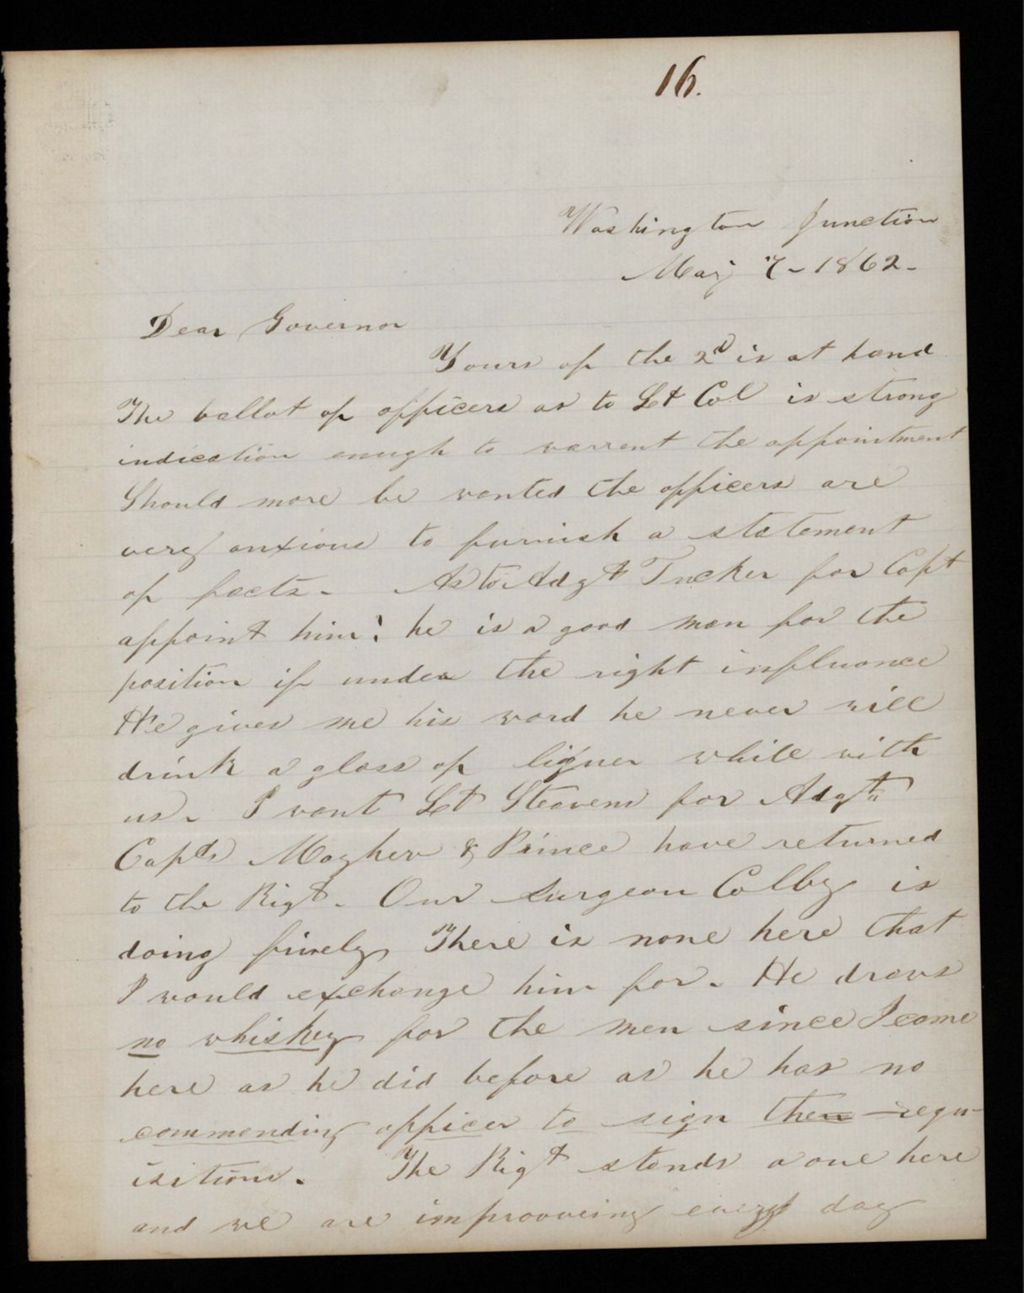 16.
Washington Junction
May 7 - 1862 -
Dear Governor
Yours of the 2d is at hand
The ballot of officers as to Lt Col is strong
indication enough to warrent the appointment
Should more be wanted the officers are
very anxious to furnish a statement
of facts - As to Adgt Tucker for Capt
appoint him! he is a good man for the
position if under the right influance
He gives me his word he never will
drink a glass of liquer while with
us - I want Lt Steavens for Adgt
Capts Magher & Prince have returned
to the Rigt - Our Surgeon Colby is
doing finely There is none here that
I would exchange him for - He draws
no whiskey for the men since I came
here as he did before as he has no
commending officer to sign then requ-
isitions - The Rigt stands a one here
and we are improoveing every day